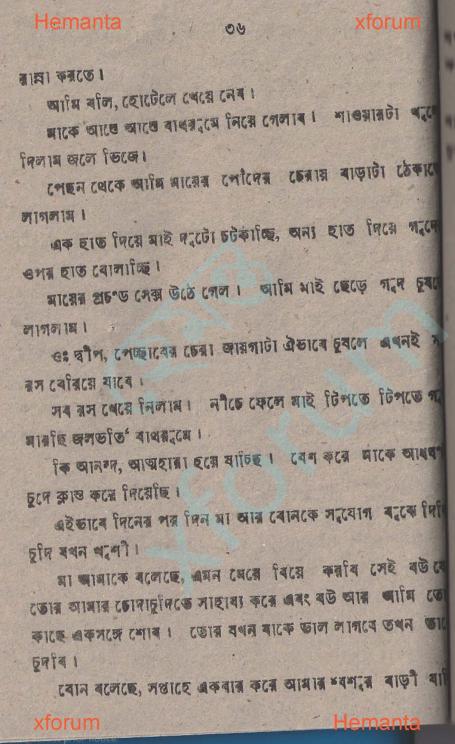 Hemanta xforum
৩৬
রান্না করতে।
আমি বলি, হোটেলে খেয়ে নেব।
মাকে আস্তে আস্তে বাথরুমে নিয়ে গেলাম। শাওয়ারটা
দিলাম জলে ভিজে।
পেছন থেকে আমি মায়ের পোঁদের চেরায় বাড়াটা
লাগলাম।
এক হাত দিয়ে মাই দুটো চটকাচ্ছি, অন্য হাত দিয়ে
ওপর হাত বোলাচ্ছি।
মায়ের প্রচণ্ড সেক্স উঠে গেল। আমি মাই ছেড়ে গুদ
লাগলাম।
ওঃ দ্বীপ, পেচ্ছাবের চেরা জায়গাটা ঐভাবে চুষলে এখনই
রস বেরিয়ে যাবে।
সব রস খেয়ে নিলাম। নীচে ফেলে মাই টিপতে টিপতে
মারছি জলভর্তি বাথরুমে।
কি আনন্দ, আত্মহারা হয়ে যাচ্ছি। বেশ করে মাকে
চুদে ক্লান্ত করে দিয়েছি।
এইভাবে দিনের পর দিন মা আর বোনকে সুযোগ বুঝে
চুদি যখন খুশী।
মা আমাকে বলেছে, এমন মেয়ে বিয়ে করবি সেই বউ
তোর আমার চোদাচুদিতে সাহায্য করে এবং বউ আর আমি
কাছে একসঙ্গে শোব। তোর যখন যাকে ভাল লাগবে তখন
চুদবি।
বোন বলেছে, সপ্তাহে একবার করে আমার শ্বশুর বাড়ী
xforum Hemanta
xforum